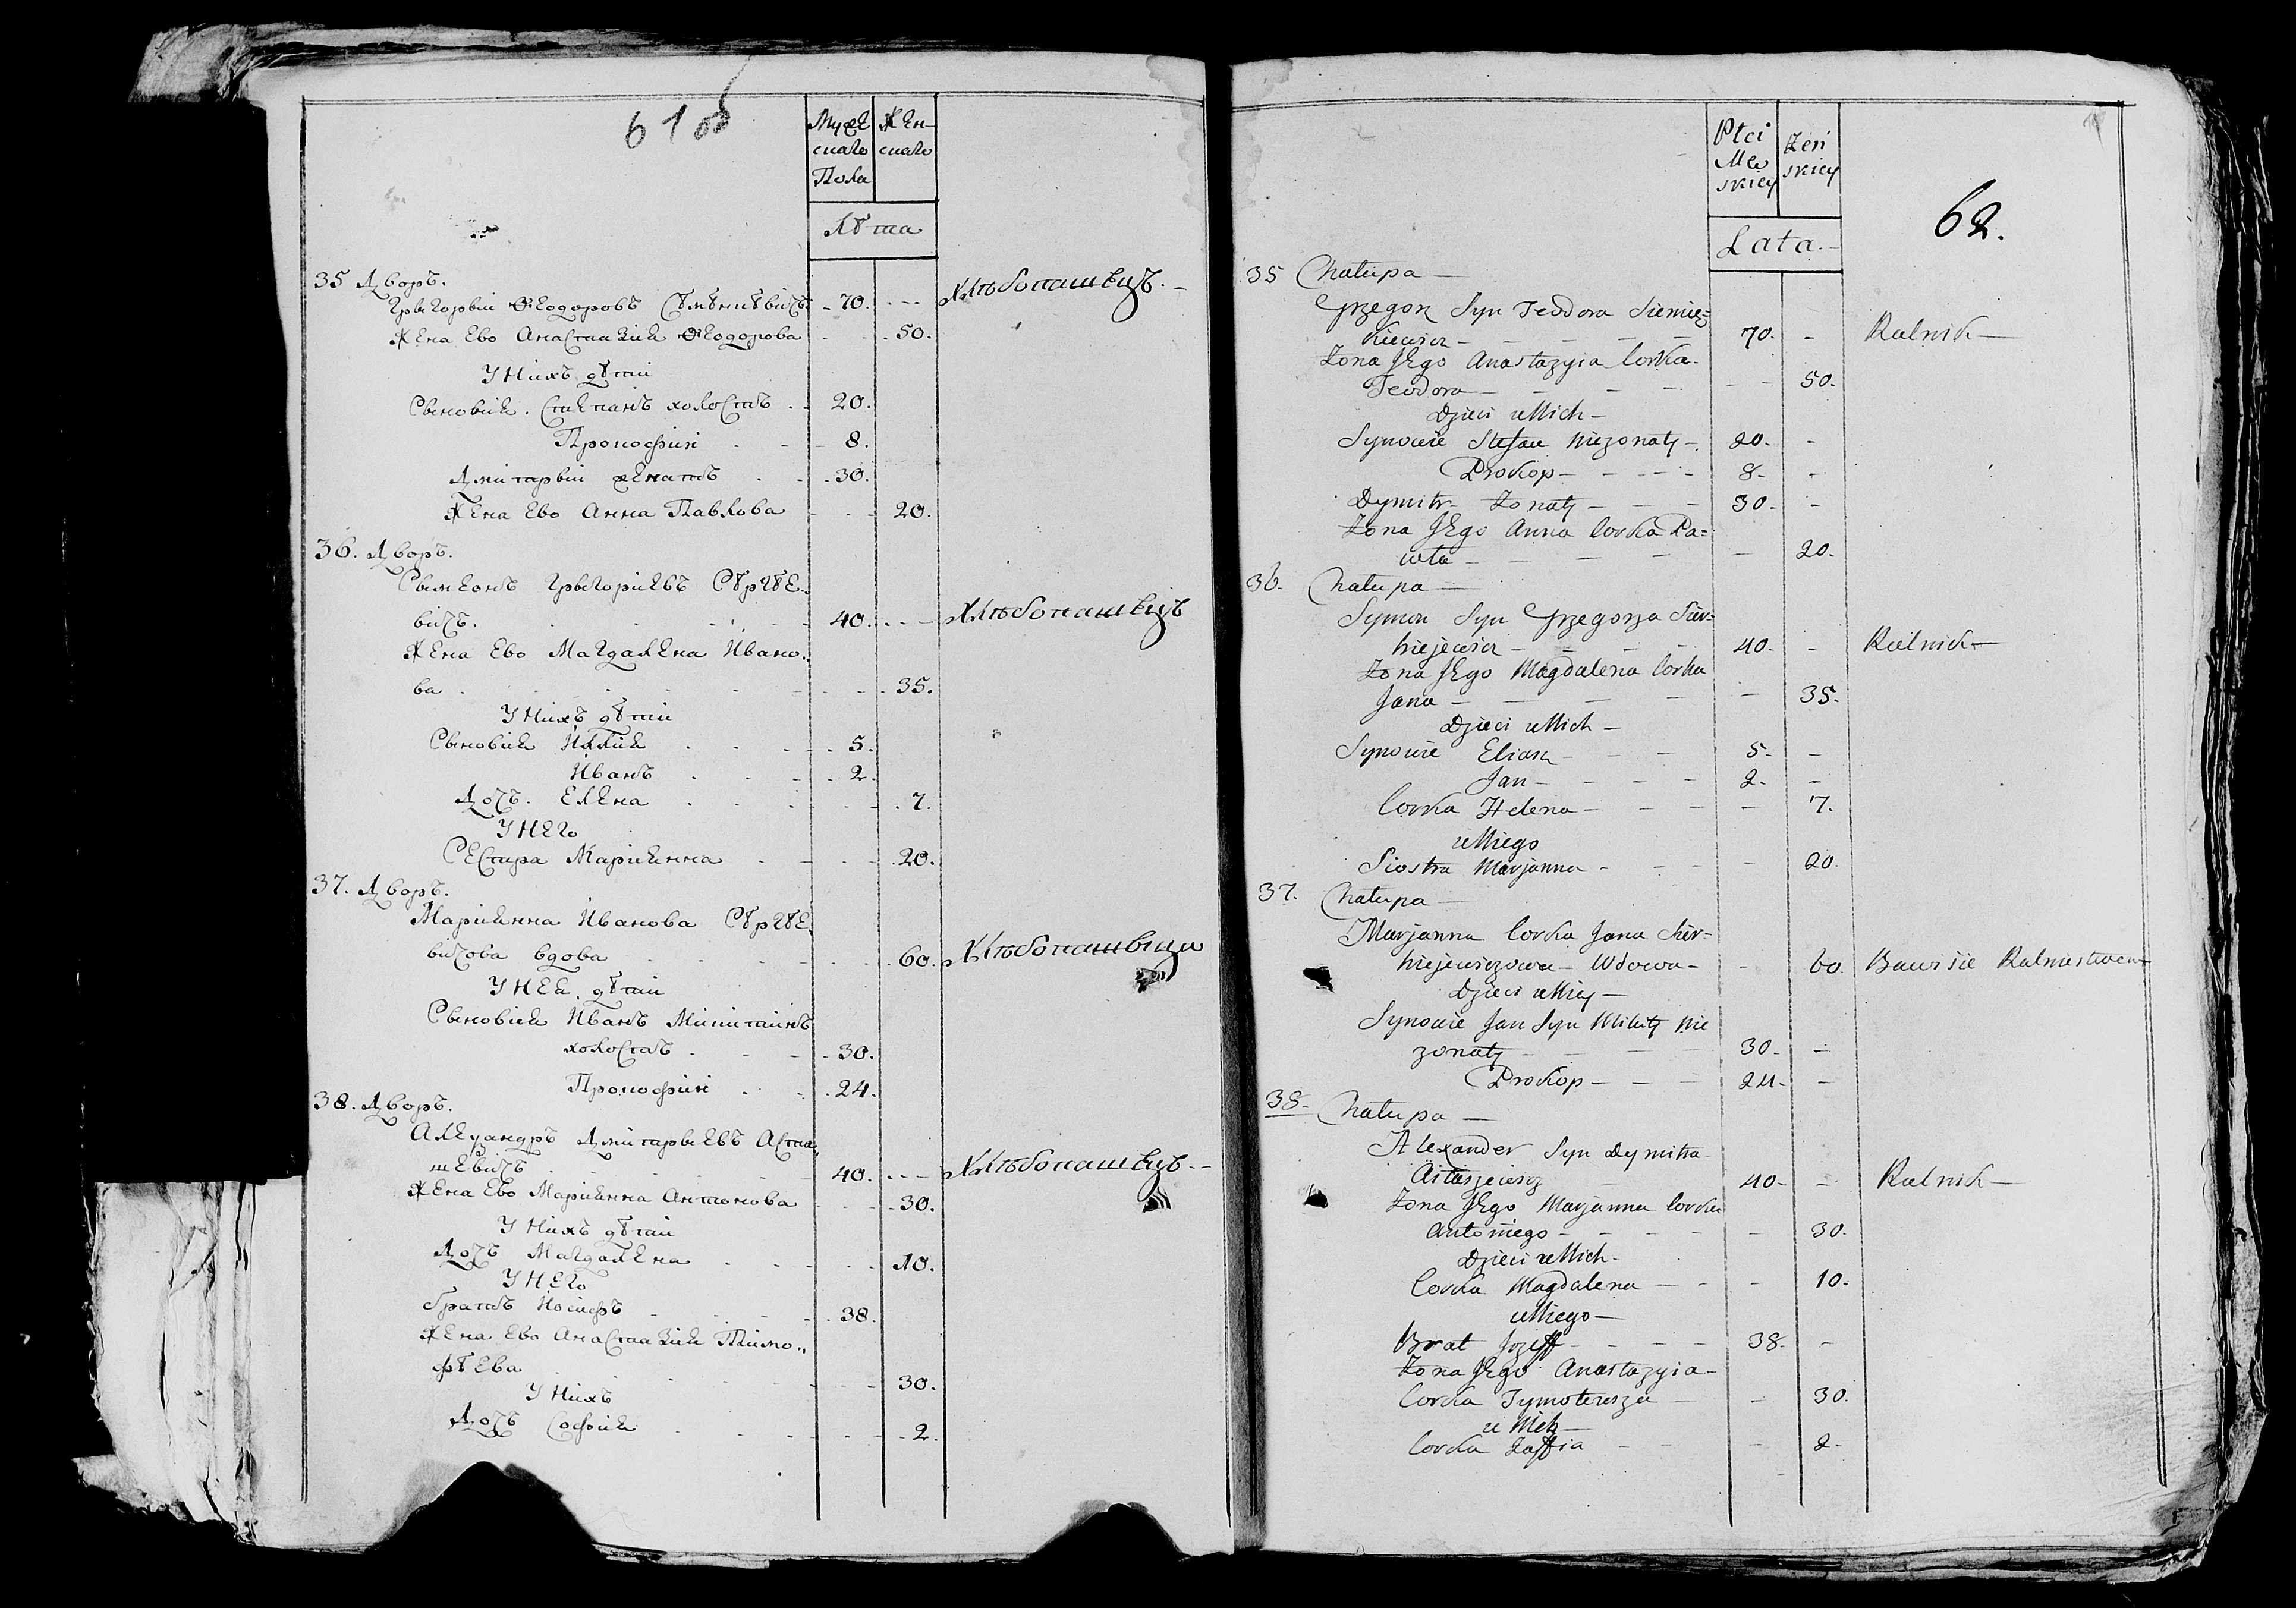 61 об
Мужескаго Пола
Женскаго
Лѣта
35 Дворъ.
Грыгорый Ѳеодоровъ Сѣмѣнѣвичъ - 70. - - - Хлѣбопашецъ. -
Жена Ево Анастазия Ѳеодорова - - 50.
У Нихъ дѣти
Сыновия. Степанъ холостъ . - 20.
Прокофий - - 8.
Дмитрый женатъ - - 30.
Жена Ево Анна Павлова - - - 20.
36. Дворъ.
Сымеонъ Грыгориевъ Сѣргѣе..
вичъ. - 40. - - - Хлѣбопашецъ
Жена Ево Магдалена Ивано..
ва - - - 35.
У Нихъ дѣти
Сыновия Илия - - 5.
Иванъ - - 2.
Дочъ. Елена - - 7.
У Него
Сестра Мариянна - - - 20.
37. Дворъ.
Мариянна Иванова Сѣргѣе..
вичова вдова - - 60. Хлѣбопашица
У Ней дѣти
Сыновия Иванъ Микитинъ
холостъ - - 30.
Прокофий - - 24.
38. Дворъ.
Александръ Дмитрыевъ Аста..
шевичъ - 40. - - - Хлѣбопашецъ. - -
Жена Ево Мариянна Антонова - - 30.
У Нихъ дѣти
Дочъ Магдалена - - 10.
У Него
братъ Иосифъ - - 38.
Жена Ево Анастазия Тимо..
фѣева - - 30.
У Нихъ
Дочъ София - - 2.
Płci Męskiey
Żeńskiey
Lata. -
62.
35 Chałupa —
Grzegorz Syn Teodora Siemie=
kiewicz - - - - 70. - Rolnik —
Żona JEgo Anastazyia Corka -
Teodora - - - - - 50.
Dzieci u Nich -
Synowie Stefan Nieżonaty - 20. -
Prokop - - - - 8. -
Dymitr Żonaty - - - 30. -
Żona JEgo Anna Corka Pa=
wła - - - - - 20.
36. Chałupa —
Symon Syn Grzegorza Sier=
hiejewicz - - - - 40. - Rolnik —
Żona JEgo Magdalena Corka
Jana - - - - - 35.
Dzieci u Nich -
Synowie Eliasz - - - 5. -
Jan - - - - 2. -
Corka Helena - - - - 7.
u Niego
Siostra Marjanna - - - - 20.
37. Chałupa —
Marjanna Corka Jana Sier=
hiejewiczowa - Wdowa - - 60. Bawi sie Rolnictwem
Dzieci u Niey —
Synowie Jan Syn Mikity Nie
żonaty - - - 30. -
Prokop - - - 24. -
38. Chałupa —
Alexander Syn Dymitra
Astaszewicz 40. - Rolnik —
Żona JEgo Marjanna Corka
Antoniego - - - - - 30.
Dzieci u Nich -
Corka Magdalena - - - 10.
u Niego —
Brat Jozeff - - - - 38. -
Żona JEgo Anastazyia -
Corka Tymoteusza - - 30.
u Nich —
Corka Zoffia - - 2.